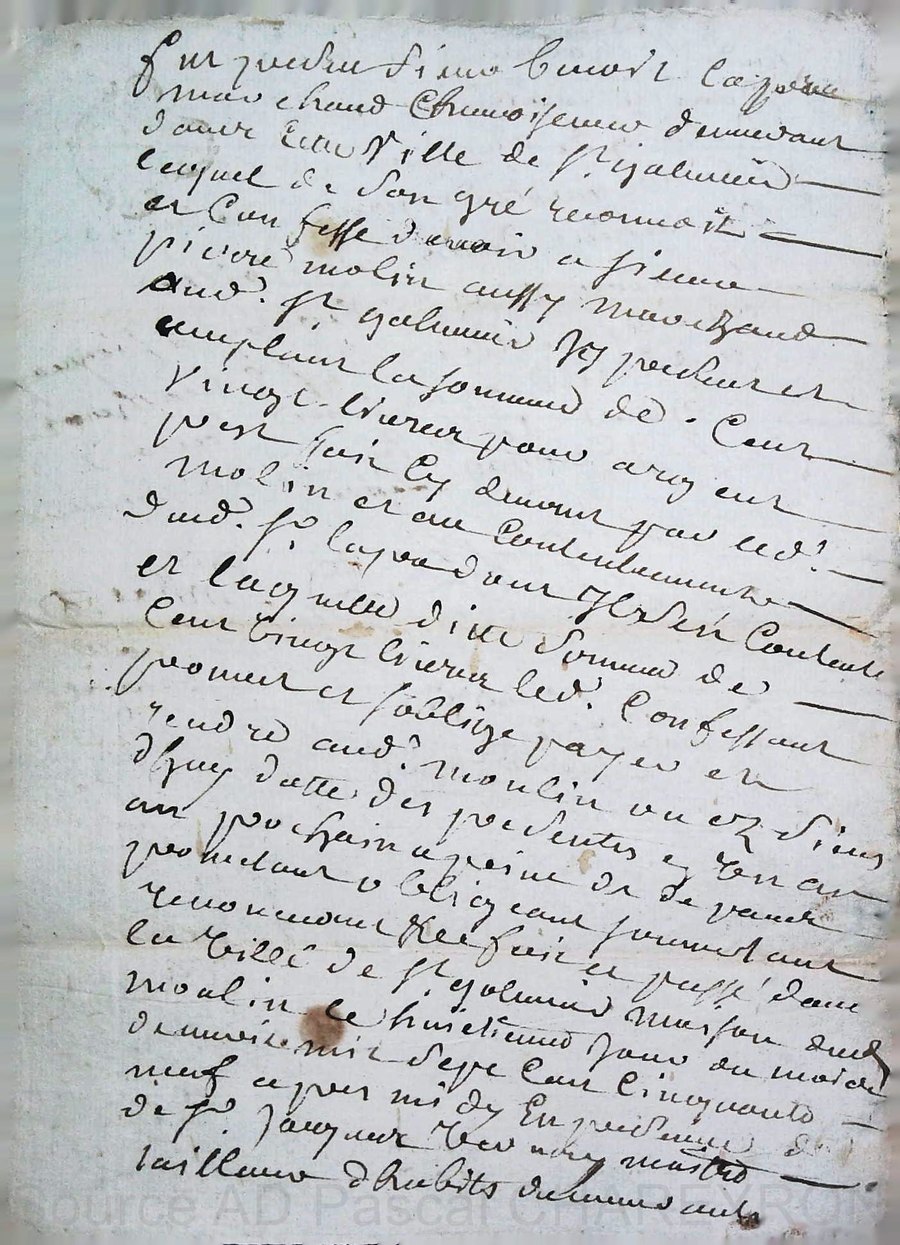 fut present sieur benoist
marchand Chamoiseur demeurant
dans cette Ville de st galmier
lequel de son gré reconnoit
et Confesse devoir a sieur
pierre molin aussy marchand
aud. st galmier present et
acceptant la somme de Cent
vingt livres pour argent
prest fait Cy devant par led.
molin et au Contentement
dud. sr dont content
et laquelle ditte somme de
Cent vingt livres led. Confessant
promet et soblige payer et
rendre aud. moulin ou es siens
dhuy datte des presentes en un an
prochain a peine de
promettant obligeant soumettant
renonceant fait et passé dans
la ville de st galmier maison dud
moulin le huitieme jour du mois de
mil sept Cent Cinquante
neuf apres midy En presence
de sr Jacques maitre
tailleur dhabits demeurant
Source AD Pascal CHAREYRON